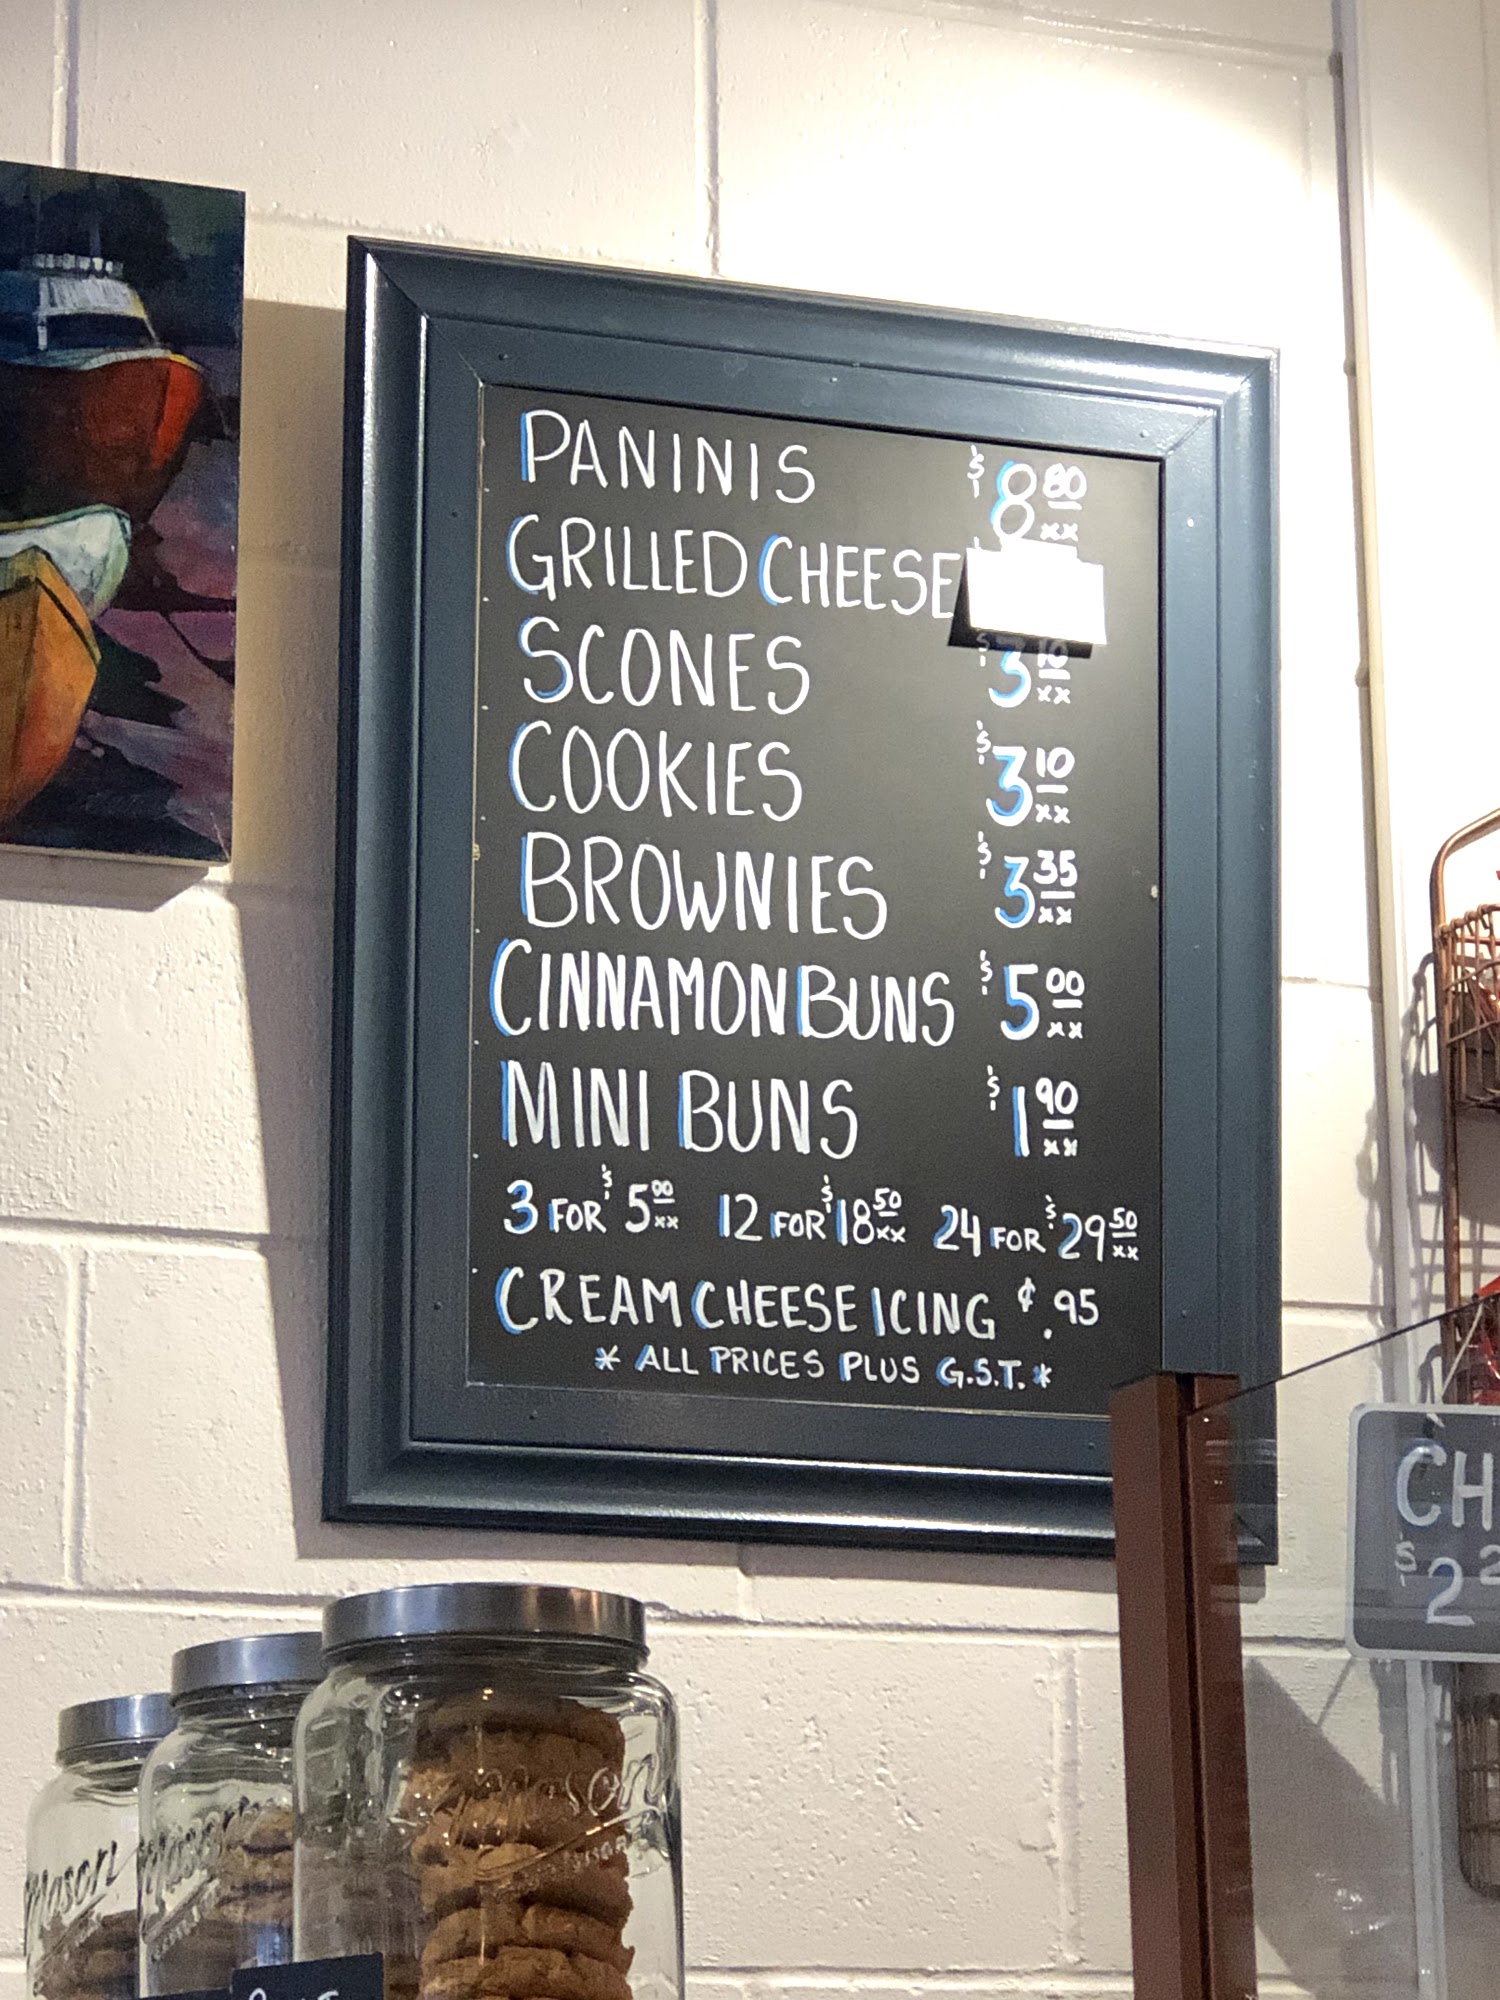 PANINIS $8 80/xx
GRILLED CHEESE
SCONES $3 10/xx
COOKIES $3 10/xx
BROWNIES $3 35/xx
CINNAMON BUNS $5 00/xx
MINI BUNS $1 90/xx
3 FOR $5 00/xx 12 FOR $18 50/xx 24 FOR $29 50/xx
CREAM CHEESE ICING ¢.95
* ALL PRICES PLUS G.S.T. *
CH
$2
Mason
Mason
Mason